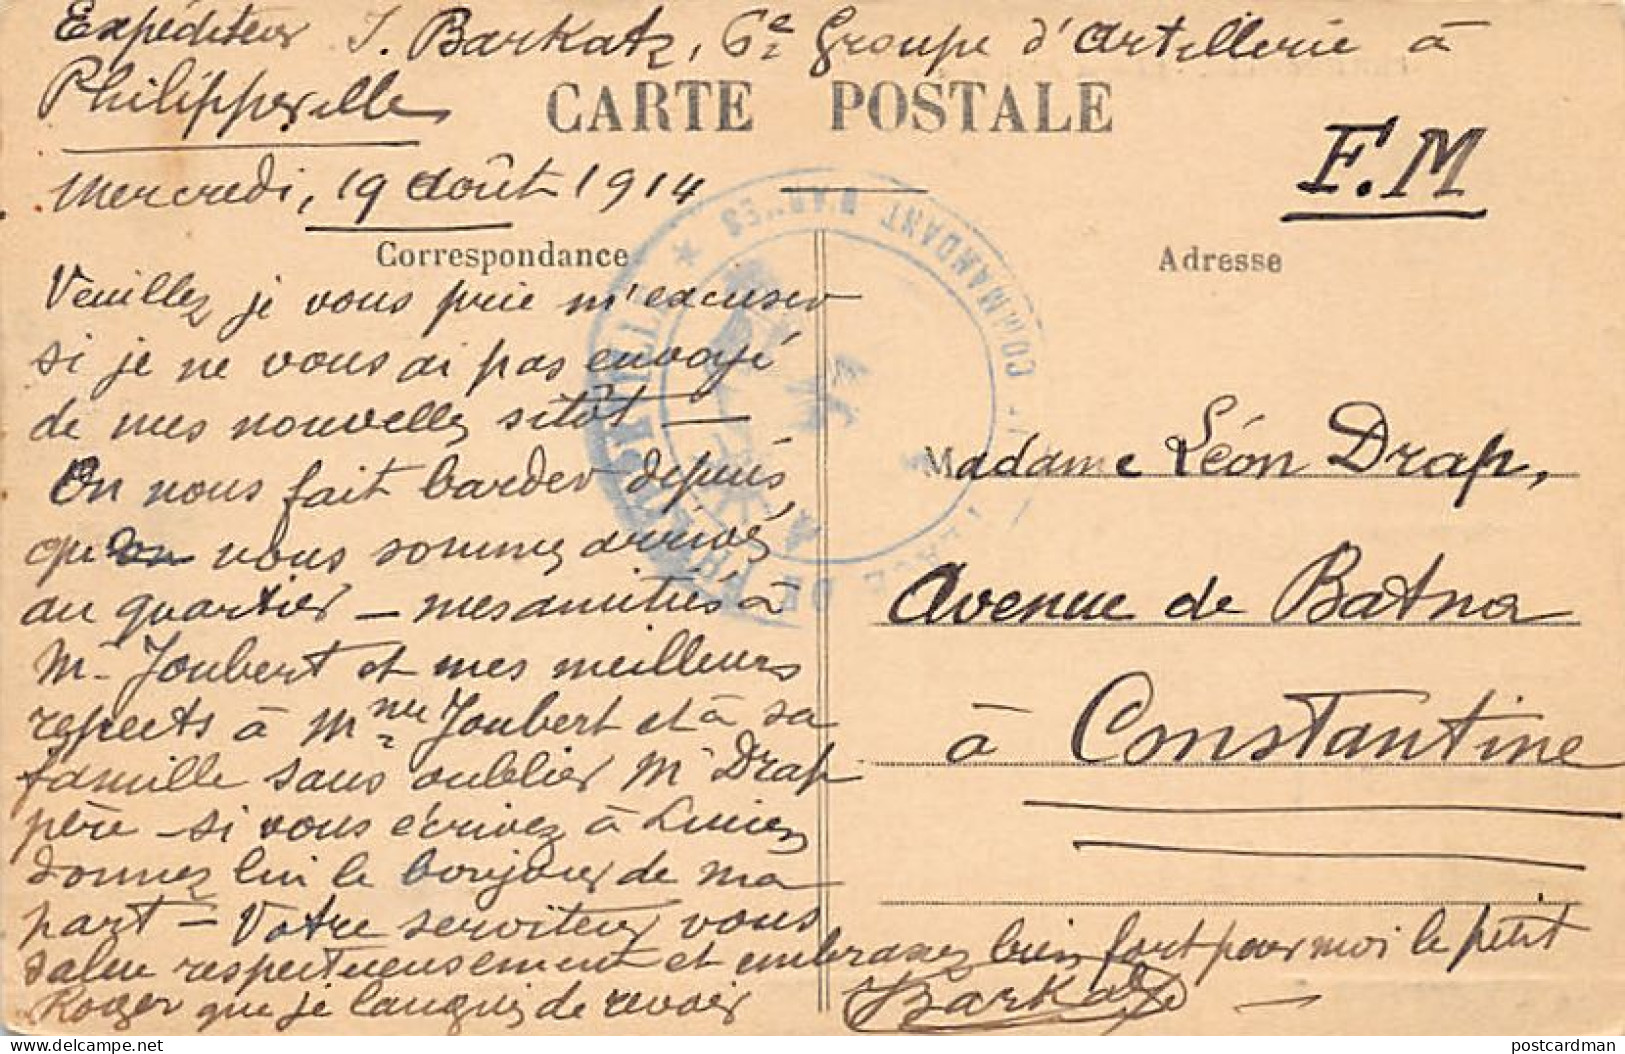 Expéditeur J. Barkatz, 6e Groupe d'Artillerie à
Philippeville
CARTE POSTALE
F.M
Mercredi, 19 Août 1914
Correspondance
Adresse
Veuillez je vous prie m'excuser
si je ne vous ai pas envoyé
de mes nouvelles sitôt —
On nous fait barder depuis
que nous sommes arrivés
au quartier — mes amitiés à
Mr Joubert et mes meilleurs
respects à Mme Joubert et à sa
famille sans oublier Mr Drap
père — si vous écrivez à Lucien
donnez lui le bonjour de ma
part — Votre serviteur vous
salue respectueusement et embrassez bien fort pour moi le petit
Roger que je languis de revoir
Barkatz
Madame Léon Drap,
Avenue de Batna
à Constantine
PLACE DE PHILIPPEVILLE * COMMANDANT D'ARMES
postcardman